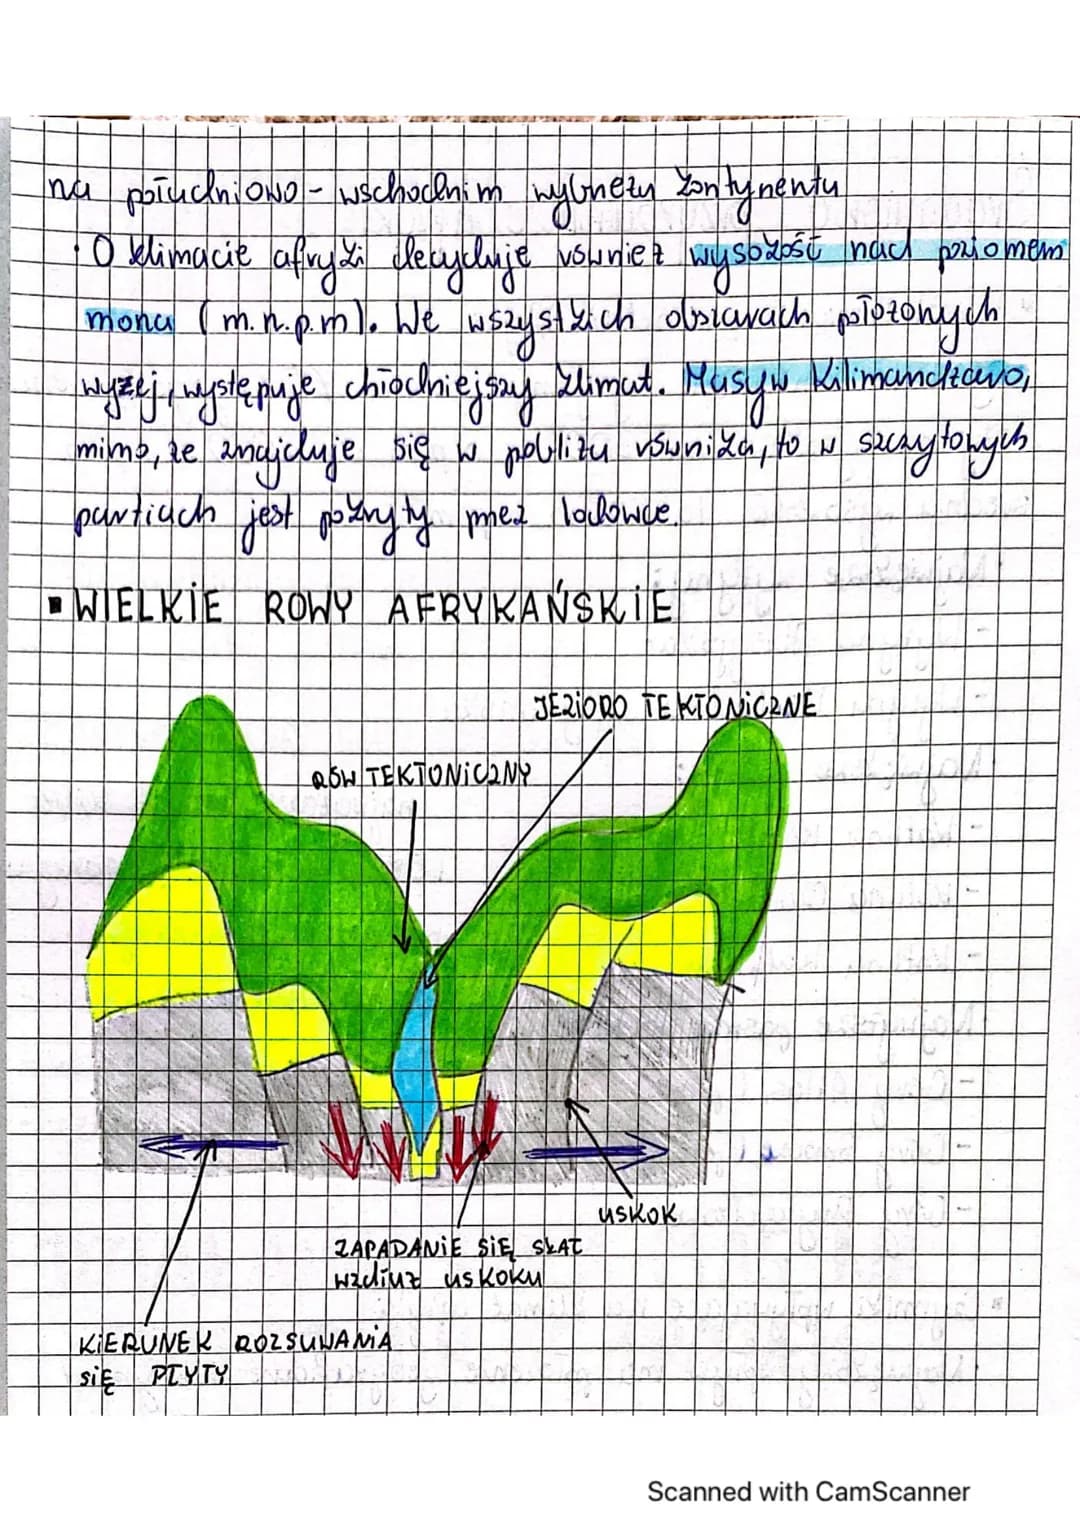 na południowo - wschodnim wybrzeżu kontynentu
· O klimacie afryki decyduje również wysokość nad poziomem
morza (m.n.p.m). We wszystkich obszarach położonych
wyżej, występuje chłodniejszy klimat. Masyw Kilimandżaro,
mimo, że znajduje się w pobliżu równika, to w szczytowych
partiach jest pokryty przez lodowce.
▪ WIELKIE ROWY AFRYKAŃSKIE
JEZIORO TEKTONICZNE
RÓW TEKTONICZNY
USKOK
ZAPADANIE SIĘ SKAŁ
wzdłuż uskoku
KIERUNEK ROZSUWANIA
SIĘ PŁYTY
Scanned with CamScanner